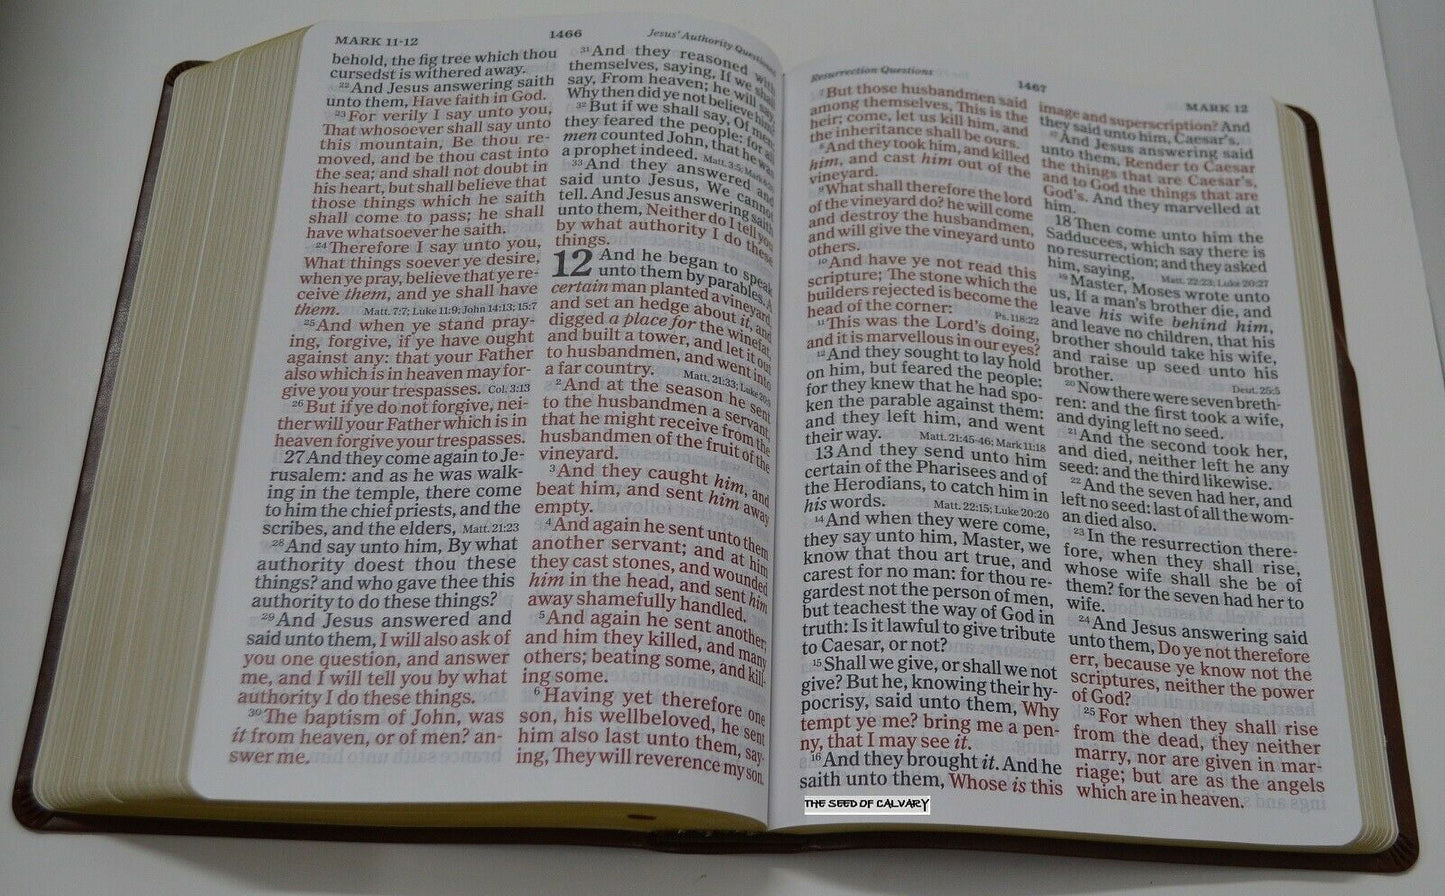 MARK 11-12
1466
Jesus' Authority Questioned
behold, the fig tree which thou
cursedst is withered away.
22 And Jesus answering saith
unto them, Have faith in God.
23 For verily I say unto you,
That whosoever shall say unto
this mountain, Be thou re-
moved, and be thou cast into
the sea; and shall not doubt in
his heart, but shall believe that
those things which he saith
shall come to pass; he shall
have whatsoever he saith.
24 Therefore I say unto you,
What things soever ye desire,
when ye pray, believe that ye re-
ceive them, and ye shall have
them. Matt. 7:7; Luke 11:9; John 14:13; 15:7
25 And when ye stand pray-
ing, forgive, if ye have ought
against any: that your Father
also which is in heaven may for-
give you your trespasses. Col. 3:13
26 But if ye do not forgive, nei-
ther will your Father which is in
heaven forgive your trespasses.
27 And they come again to Je-
rusalem: and as he was walk-
ing in the temple, there come
to him the chief priests, and the
scribes, and the elders, Matt. 21:23
28 And say unto him, By what
authority doest thou these
things? and who gave thee this
authority to do these things?
29 And Jesus answered and
said unto them, I will also ask of
you one question, and answer
me, and I will tell you by what
authority I do these things.
30 The baptism of John, was
it from heaven, or of men? an-
swer me.
31 And they reasoned with
themselves, saying, If we shall
say, From heaven; he will say,
Why then did ye not believe him?
32 But if we shall say, Of men;
they feared the people: for all
men counted John, that he was
a prophet indeed. Matt. 3:5; Mark
33 And they answered and
said unto Jesus, We cannot
tell. And Jesus answering saith
unto them, Neither do I tell you
by what authority I do these
things.
12 And he began to speak
unto them by parables. A
certain man planted a vineyard,
and set an hedge about it, and
digged a place for the winefat,
and built a tower, and let it out
to husbandmen, and went into
a far country. Matt. 21:33; Luke 20:9
2 And at the season he sent
to the husbandmen a servant,
that he might receive from the
husbandmen of the fruit of the
vineyard.
3 And they caught him, and
beat him, and sent him away
empty.
4 And again he sent unto them
another servant; and at him
they cast stones, and wounded
him in the head, and sent him
away shamefully handled.
5 And again he sent another;
and him they killed, and many
others; beating some, and kill-
ing some.
6 Having yet therefore one
son, his wellbeloved, he sent
him also last unto them, say-
ing, They will reverence my son.
Resurrection Questions
1467
MARK 12
7 But those husbandmen said
among themselves, This is the
heir; come, let us kill him, and
the inheritance shall be ours.
8 And they took him, and killed
him, and cast him out of the
vineyard.
9 What shall therefore the lord
of the vineyard do? he will come
and destroy the husbandmen,
and will give the vineyard unto
others.
10 And have ye not read this
scripture; The stone which the
builders rejected is become the
head of the corner: Ps. 118:22
11 This was the Lord's doing,
and it is marvellous in our eyes?
12 And they sought to lay hold
on him, but feared the people:
for they knew that he had spo-
ken the parable against them:
and they left him, and went
their way. Matt. 21:45-46; Mark 11:18
13 And they send unto him
certain of the Pharisees and of
the Herodians, to catch him in
his words. Matt. 22:15; Luke 20:20
14 And when they were come,
they say unto him, Master, we
know that thou art true, and
carest for no man: for thou re-
gardest not the person of men,
but teachest the way of God in
truth: Is it lawful to give tribute
to Caesar, or not?
15 Shall we give, or shall we not
give? But he, knowing their hy-
pocrisy, said unto them, Why
tempt ye me? bring me a pen-
ny, that I may see it.
16 And they brought it. And he
saith unto them, Whose is this
image and superscription? And
they said unto him, Caesar's.
17 And Jesus answering said
unto them, Render to Caesar
the things that are Caesar's,
and to God the things that are
God's. And they marvelled at
him.
18 Then come unto him the
Sadducees, which say there is
no resurrection; and they asked
him, saying, Matt. 22:23; Luke 20:27
19 Master, Moses wrote unto
us, If a man's brother die, and
leave his wife behind him,
and leave no children, that his
brother should take his wife,
and raise up seed unto his
brother. Deut. 25:5
20 Now there were seven breth-
ren: and the first took a wife,
and dying left no seed.
21 And the second took her,
and died, neither left he any
seed: and the third likewise.
22 And the seven had her, and
left no seed: last of all the wom-
an died also.
23 In the resurrection there-
fore, when they shall rise,
whose wife shall she be of
them? for the seven had her to
wife.
24 And Jesus answering said
unto them, Do ye not therefore
err, because ye know not the
scriptures, neither the power
of God?
25 For when they shall rise
from the dead, they neither
marry, nor are given in mar-
riage; but are as the angels
which are in heaven.
THE SEED OF CALVARY